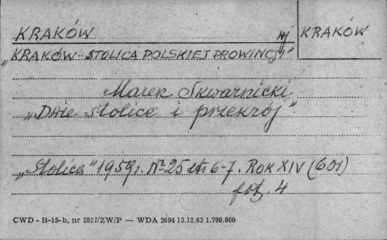 KRAKÓW
KRAKÓW
"KRAKÓW - STOLICA POLSKIEJ PROWINCJI"
Marek Skwarnicki
"Dwie stolice i przekrój".
"Stolica" 1959 r. Nr 25 str 6-7. ROK XIV (601)
fot. 4
CWD - B-15-b, nr 2827/ZW/P — WDA 2694 13.12.62 1.700.000